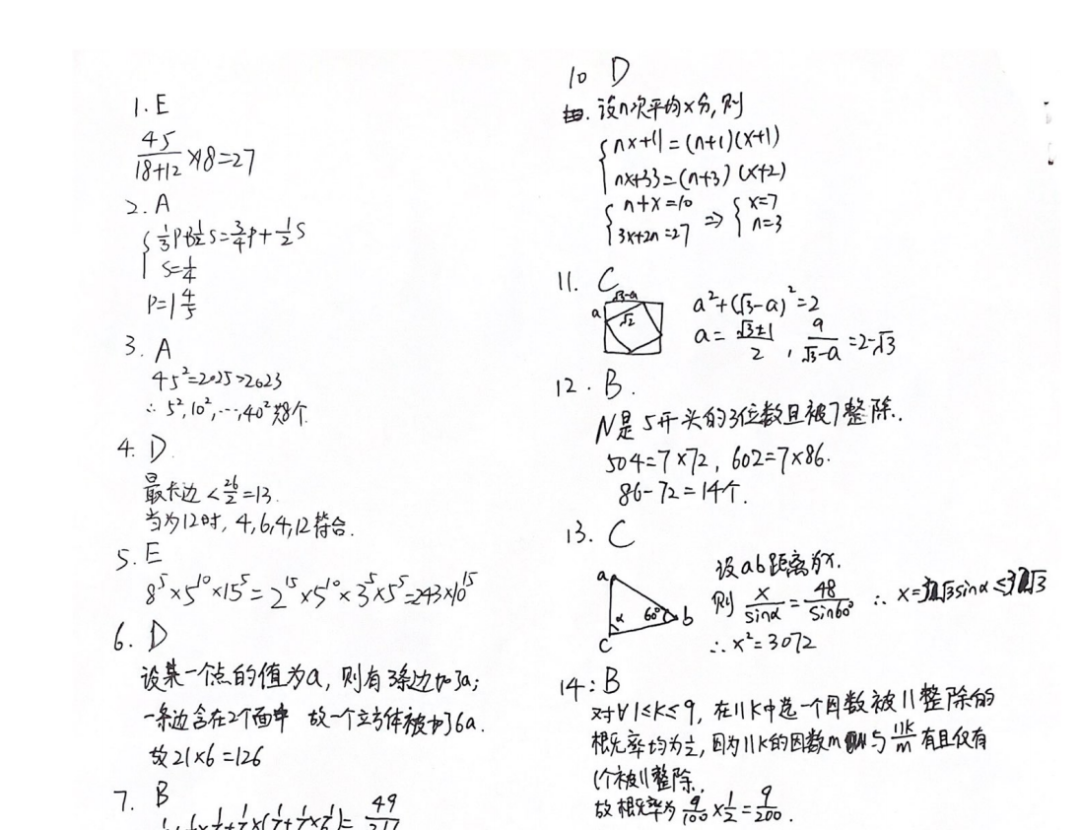 1. E
45/(18+12) × 18 = 27
2. A
S = 1/4
P = 1 4/5
3. A
45² = 2025 > 2023
∴ 5², 10², …, 40² 共8个
4. D
最长边 < 26/2 = 13.
当为12时, 4, 6, 4, 12 符合.
5. E
8⁵ × 5¹⁰ × 15⁵ = 2¹⁵ × 5¹⁰ × 3⁵ × 5⁵ = 243 × 10¹⁵
6. D
设某一个点的值为a, 则有3条边加了a;
一条边含在2个面中 故一个立方体被加了6a.
故 21 × 6 = 126
7. B
49
10 D
设n次平均x分, 则
nx+11 = (n+1)(x+1)
nx+33 = (n+3)(x+2)
n+x = 10
3x+2n = 27 ⇒ { x=7 n=3
11. C
√3-a
a √2
a² + (√3-a)² = 2
a = (√3±1)/2 , a/(√3-a) = 2-√3
12. B.
N是5开头的3位数且被7整除.
504 = 7 × 72, 602 = 7 × 86.
86 - 72 = 14个.
13. C
a α 60° b c
设ab距离为x.
则 x/sinα = 48/sin60°
∴ x² = 3072
14: B
对∀1≤k≤9, 在11k中选一个因数被11整除的
概率均为½, 因为11k的因数m 与 11k/m 有且仅有
1个被11整除.
故概率为 9/100 × 1/2 = 9/200.